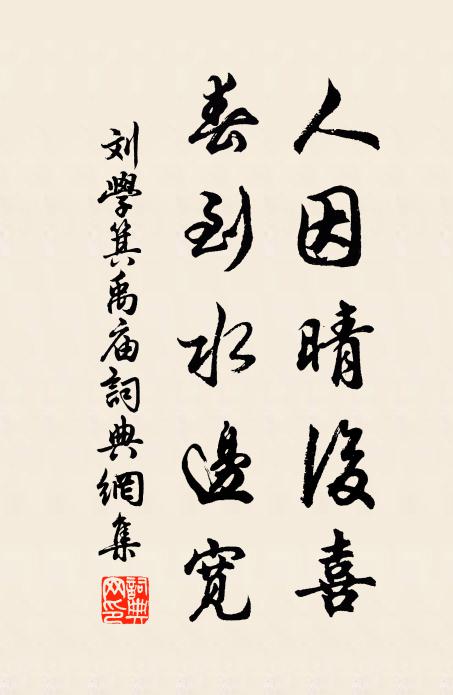 人因晴後喜
春到水邊寬
刘學箕禹庙詞典網集
詞典网印